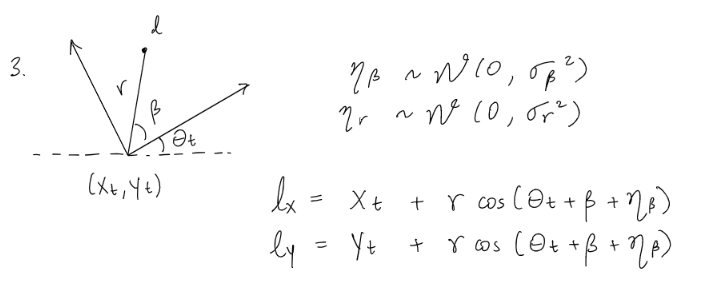 l
3.
r
β
θt
(xt, yt)
ηβ ~ N(0, σβ²)
ηr ~ N(0, σr²)
lx = xt + r cos(θt + β + ηβ)
ly = yt + r cos(θt + β + ηβ)